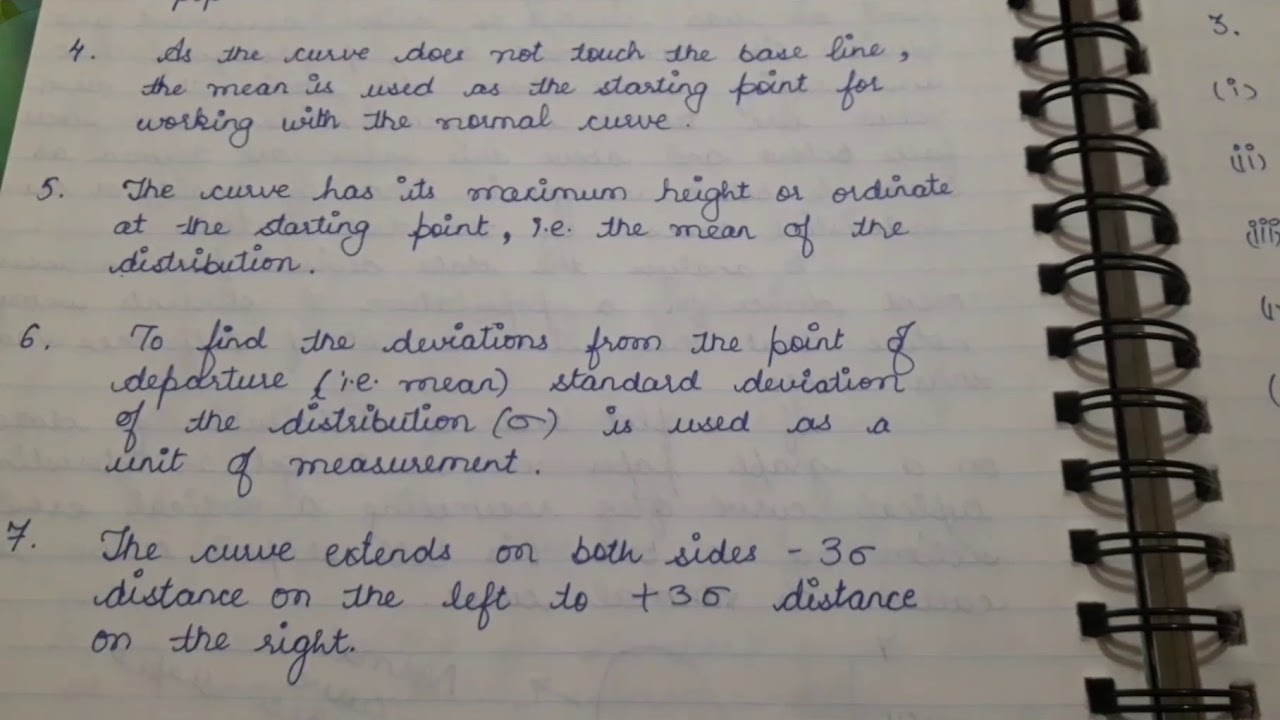 4. As the curve does not touch the base line,
the mean is used as the starting point for
working with the normal curve.
5. The curve has its maximum height or ordinate
at the starting point, i.e. the mean of the
distribution.
6. To find the deviations from the point of
departure (i.e. mean) standard deviation
of the distribution (σ) is used as a
unit of measurement.
7. The curve extends on both sides -3σ
distance on the left to +3σ distance
on the right.
3.
(i)
(ii)
(iii)